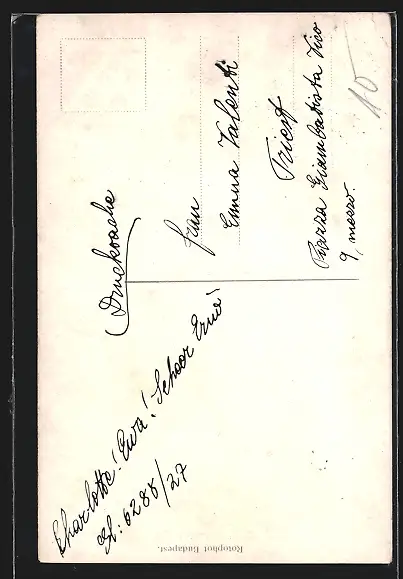 Drucksache
Frau
Emma Valenti
Triest
Piazza Giambatista Vico
9, mezzo.
10
Charlotte! Ewa! Schoor Erné
Gl: 6288/27
Rotophot Budapest.